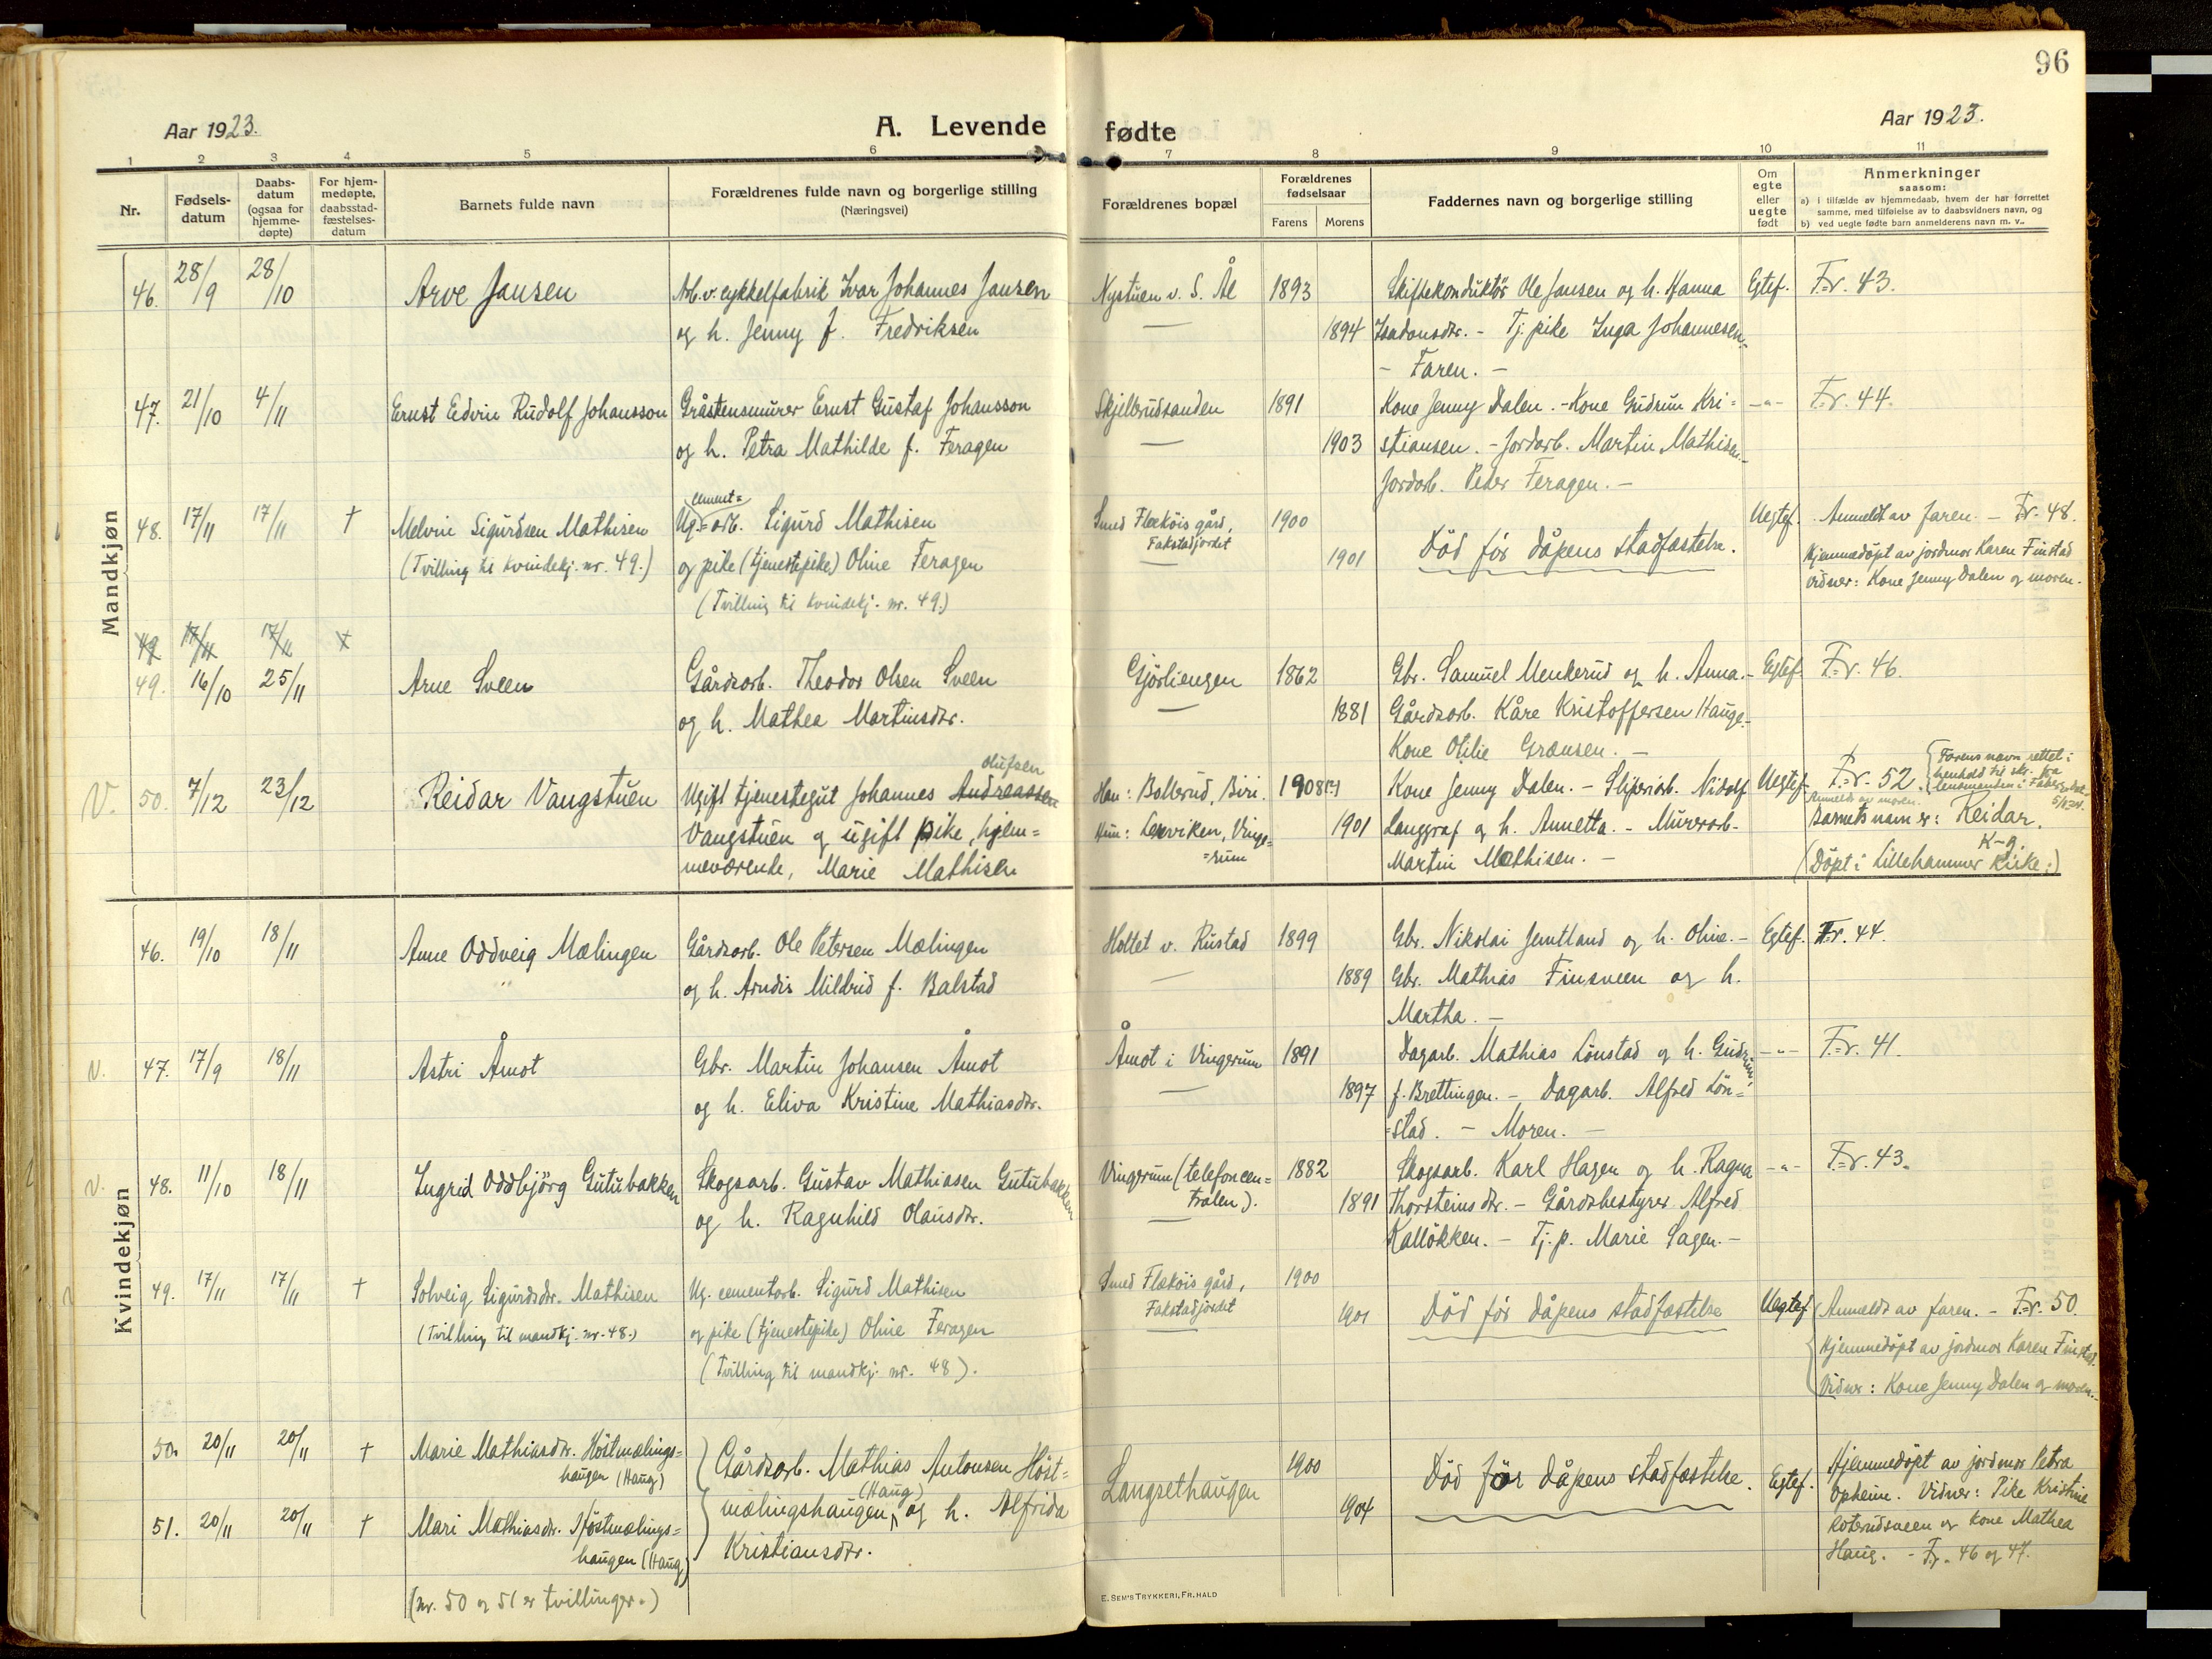 96
Aar 1923.
A. Levende fødte
Aar 1923.
1 2 3 4 5 6 7 8 9 10 11
Nr.
Fødsels-
datum
Daabs-
datum
(ogsaa for
hjemme-
døpte)
For hjem-
medøpte,
daabsstad-
fæstelses-
datum
Barnets fulde navn
Forældrenes fulde navn og borgerlige stilling
(Næringsvei)
Forældrenes bopæl
Forældrenes
fødselsaar
Farens Morens
Faddernes navn og borgerlige stilling
Om
egte
eller
uegte
født
Anmerkninger
saasom:
a) i tilfælde av hjemmedaab, hvem der har forrettet
samme, med tilføielse av to daabsvidners navn, og
b) ved uegte fødte barn anmelderens navn m. v..
Mandkjøn
46. 28/9 28/10 Arve Jansen Arb. v. cykkelfabrik Ivar Johannes Jansen Nystuen v. S. Ål 1893 Skiftekonduktör Ole Jansen og h. Hanna Egtef. F.r. 43.
og h. Jenny f. Fredriksen — 1894 - Tj. pike Inga Johannesen.-
- Faren. -
47. 21/10 4/11 Ernst Edvin Rudolf Johansson Gråstensmurer Ernst Gustaf Johansson Skjelbrudsanden 1891 Kone Jenny Dalen. - Kone Gudrun Kri= -"- F.r. 44.
og h. Petra Mathilde f. Feragen — 1903 stiansen. - Jordarb. Martin Mathisen.-
Jordarb. Peder Feragen. -
cement=
48. 17/11 17/11 † Melvin Sigurdsen Mathisen Ug.=arb. Sigurd Mathisen Smed Fleköis gård, 1900 Död för dåpens stadfæstelse. Uegtef. Anmeldt av faren. - F.r. 48.
(Tvilling til kvindekj. nr. 49.) og pike (tjenestepike) Oline Feragen Fakstadjordet 1901 Hjemmedöpt av jordmor Karen Finstad
(Tvilling til kvindekj. nr. 49.) Vidner: Kone Jenny Dalen og moren.
49 17/11 17/11 †
49. 16/10 25/11 Arne Sveen Gårdsarb. Theodor Olsen Sveen Gjörliengen 1862 Gbr. Samuel Menkerud og h. Anna.- Egtef. F.r. 46.
og h. Mathea Martinsdtr. — 1881 Gårdsarb. Kåre Kristoffersen Hauge.-
Kone Otilie Grænsen. -
Olufsen
V. 50. 7/12 23/12 Reidar Vangstuen Ugift tjenestegut Johannes Andreassen Han: Bollerud, Biri. 1908(?) Kone Jenny Dalen. - Sliperiarb. Nidolf Uegtef. F.r. 52. Farens navn rettet i
henhold til skr. fra
lensmanden i
Anmeldt av moren.
Vangstuen og ugift pike, hjem= Hun: Lerviken, Vinge= 1901 Langgraf og h. Annetta. - Murerarb. Barnets navn er: Reidar.
=rum
meværende, Marie Mathisen Martin Mathisen. - K-g.
(Döpt i Lillehammer Kirke.)
Kvindekjøn
46. 19/10 18/11 Anne Oddveig Mælingen Gårdsarb. Ole Petersen Mælingen Holtet v. Rustad 1899 Gbr. Nikolai Jemtland og h. Oline. - Egtef. F.r. 44.
og h. Arndis Mildrid f. Balstad — 1889 Gbr. Mathias Finsveen og h.
Martha. -
N. 47. 17/9 18/11 Astri Åmot Gbr. Martin Johansen Åmot Åmot i Vingrum 1891 Dagarb. Mathias Lönstad og h. Gudrun, -"- F.r. 41.
og h. Eliva Kristine Mathiasdtr. — 1897 f. Brettingen. - Dagarb. Alfred Lön=
=stad. - Moren. -
N. 48. 11/10 18/11 Ingrid Oddbjörg Gutubakken Skogsarb. Gustav Mathiasen Gutubakken Vingrum (telefoncen= 1882 Skogsarb. Karl Hagen og h. Ragna -"- F.r. 43.
og h. Ragnhild Olausdtr. tralen). 1891 Thorsteinsdtr. - Gårdsbestyrer Alfred
Kallökken. - Tj. p. Marie Sagen. -
49. 17/11 17/11 † Solveig Sigurdsdtr. Mathisen Ug. cementarb. Sigurd Mathisen Smed Fleköis gård, 1900 Död för dåpens stadfæstelse Uegtef. Anmeldt av faren. - F.r. 50.
(Tvilling til mandkj. nr. 48.) og pike (tjenestepike) Oline Feragen Fakstadjordet 1901 Hjemmedöpt av jordmor Karen Finstad.
(Tvilling til mandkj. nr. 48). Vidner: Kone Jenny Dalen og moren.
50. 20/11 20/11 † Marie Mathiasdtr. Höstmælings= Gårdsarb. Mathias Antonsen Höst= Langsethaugen 1900 Död för dåpens stadfæstelse. Egtef. Hjemmedöpt av jordmor Petra
haugen (Haug) (Haug) Opheim. Vidner: Pike Kristine
51. 20/11 20/11 † Mari Mathiasdr. Höstmælings= mælingshaugen og h. Alfrida 1904 Roterudsveen og kone Mathea
haugen (Haug) Kristiansdtr. Haug. - F.r. 46 og 47.
(nr. 50 og 51 er tvillinger.)
E. SEM'S TRYKKERI, FR.HALD